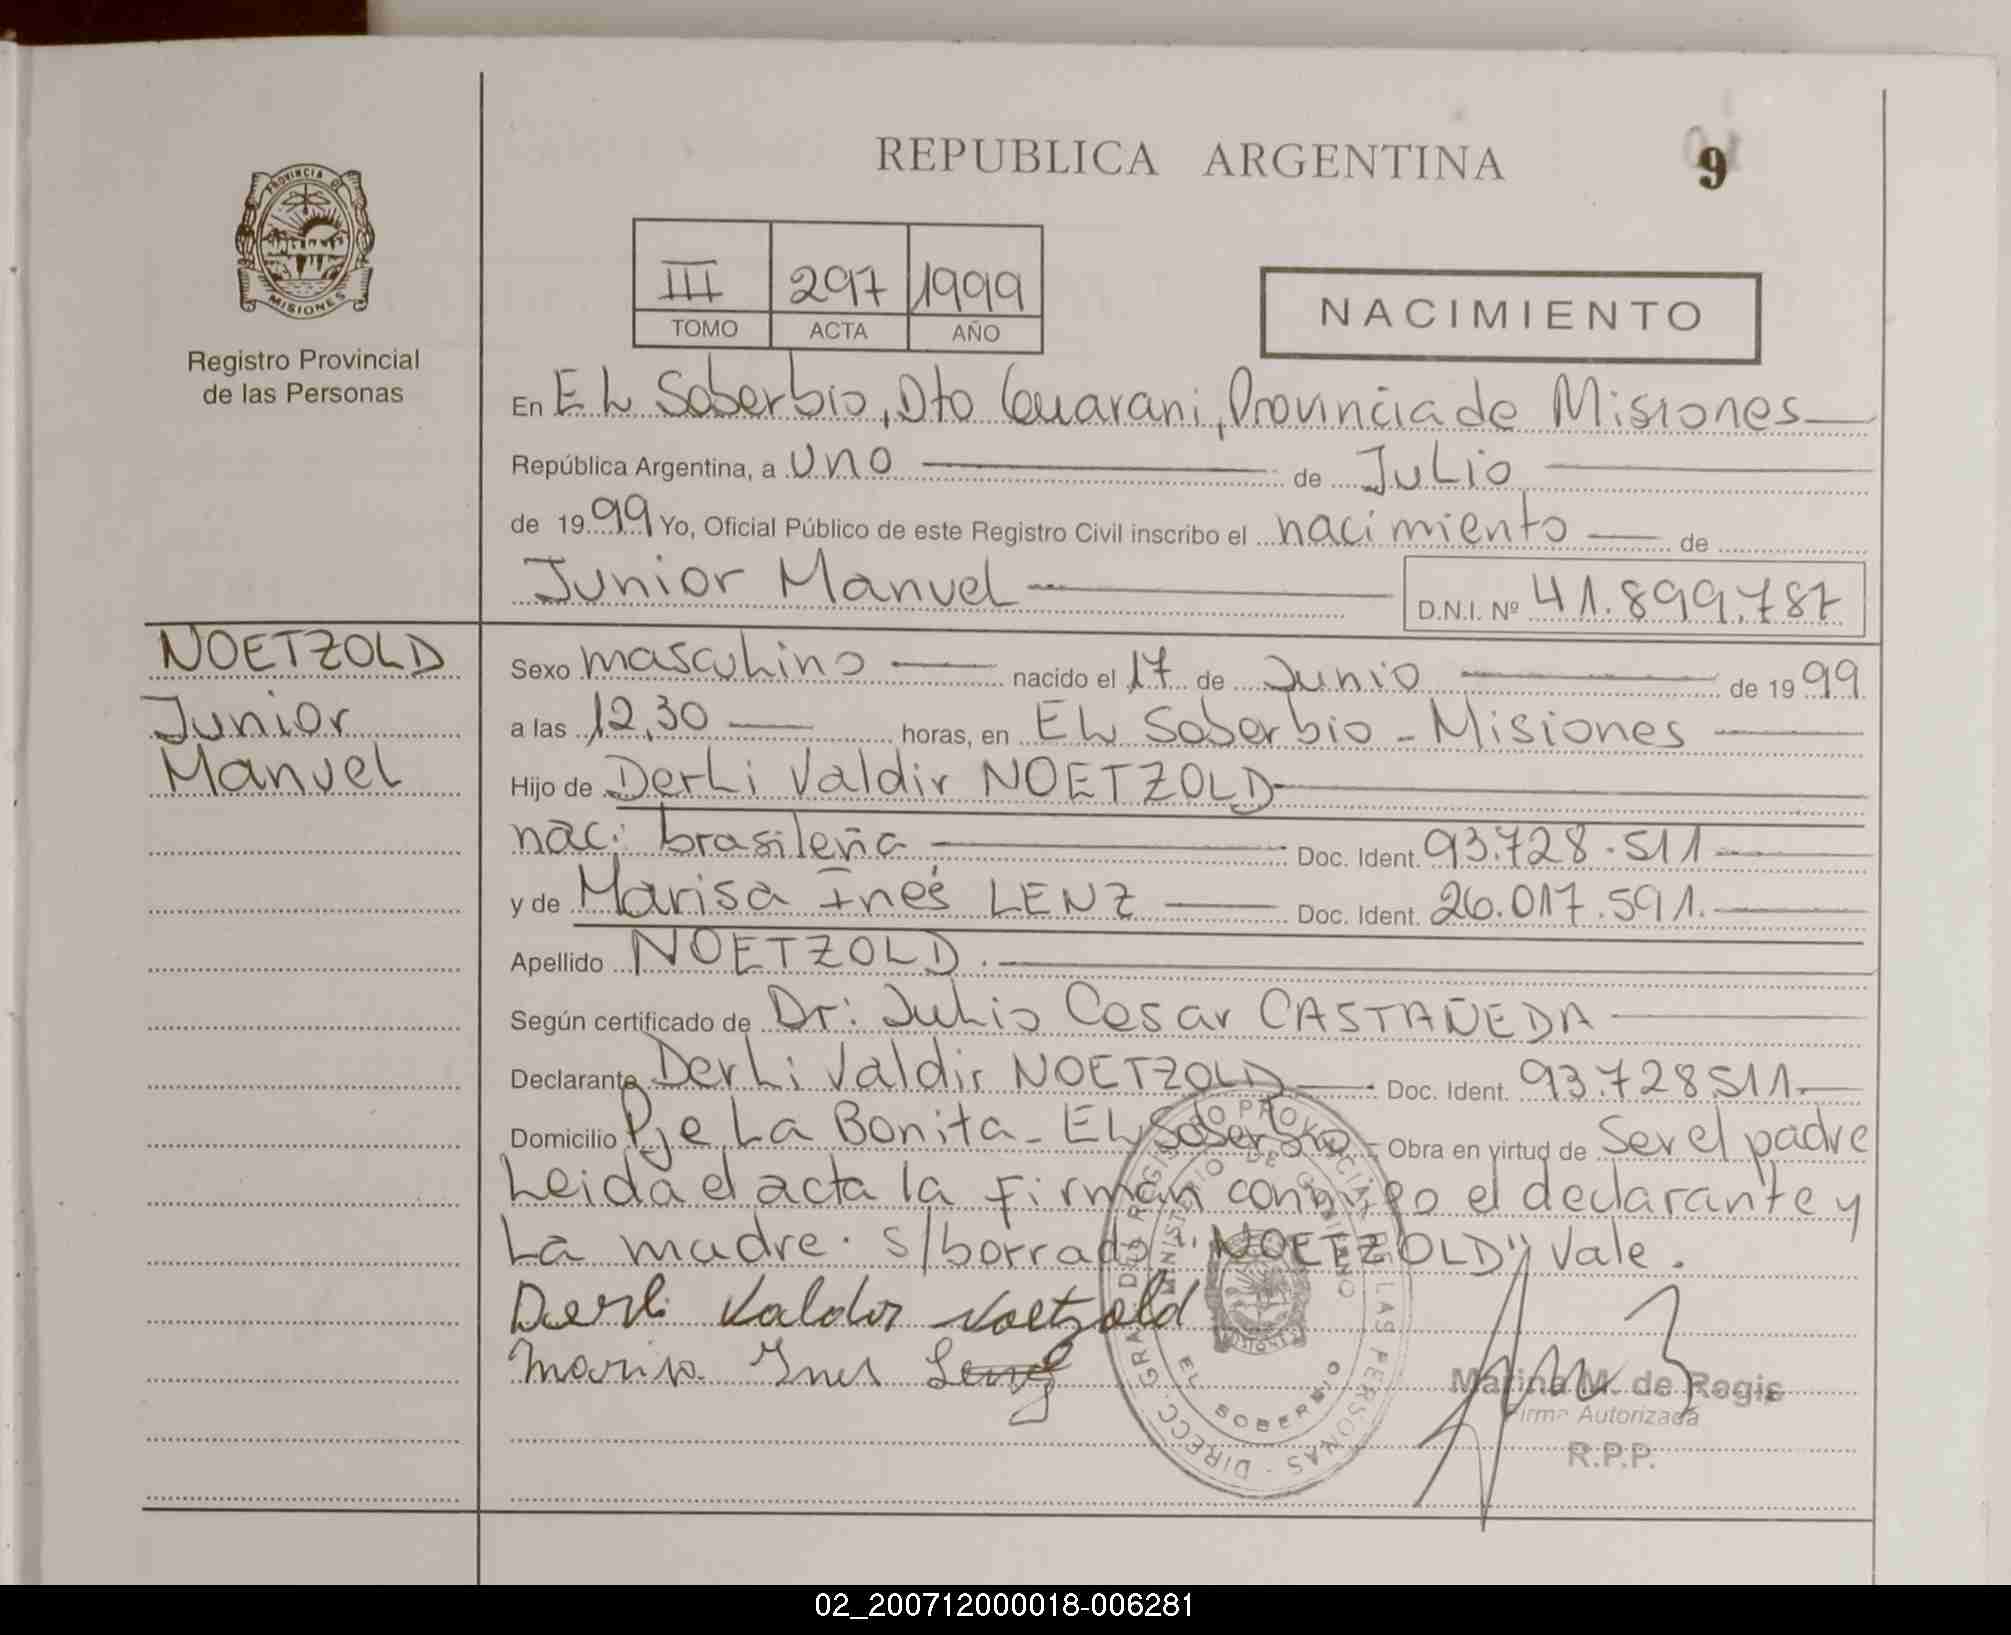 REPUBLICA ARGENTINA
9
PROVINCIA DE
MISIONES
Registro Provincial
de las Personas
III 297 1999
TOMO ACTA AÑO
NACIMIENTO
En EL Soberbio, Dto Guarani, Provincia de Misiones
República Argentina, a uno de Julio
de 1999 Yo, Oficial Público de este Registro Civil inscribo el nacimiento de
Junior Manuel D.N.I. Nº 41.899.787
NOETZOLD
Junior
Manuel
Sexo masculino nacido el 17 de Junio de 1999
a las 12,30 horas, en EL Soberbio - Misiones
Hijo de Derli Valdir NOETZOLD
nac: brasileña Doc. Ident. 93.728.511
y de Marisa Inés LENZ Doc. Ident. 26.017.591.
Apellido NOETZOLD.
Según certificado de Dr: Julio Cesar CASTAÑEDA
Declarante Derli Valdir NOETZOLD Doc. Ident. 93.728.511.
Domicilio Pje La Bonita - EL Soberbio - Obra en virtud de Ser el padre
Leida el acta la firman conmigo el declarante y
La madre. s/borrado "NOETZOLD" Vale.
Derli Valdir Noetzold
Marisa Ines Lenz
DIRECC. GRAL. DEL REGISTRO PROVINCIAL DE LAS PERSONAS
MINISTERIO DE GOBIERNO
MISIONES
EL SOBERBIO
Marina M. de Regis
Firma Autorizada
R.P.P.
02_200712000018-006281